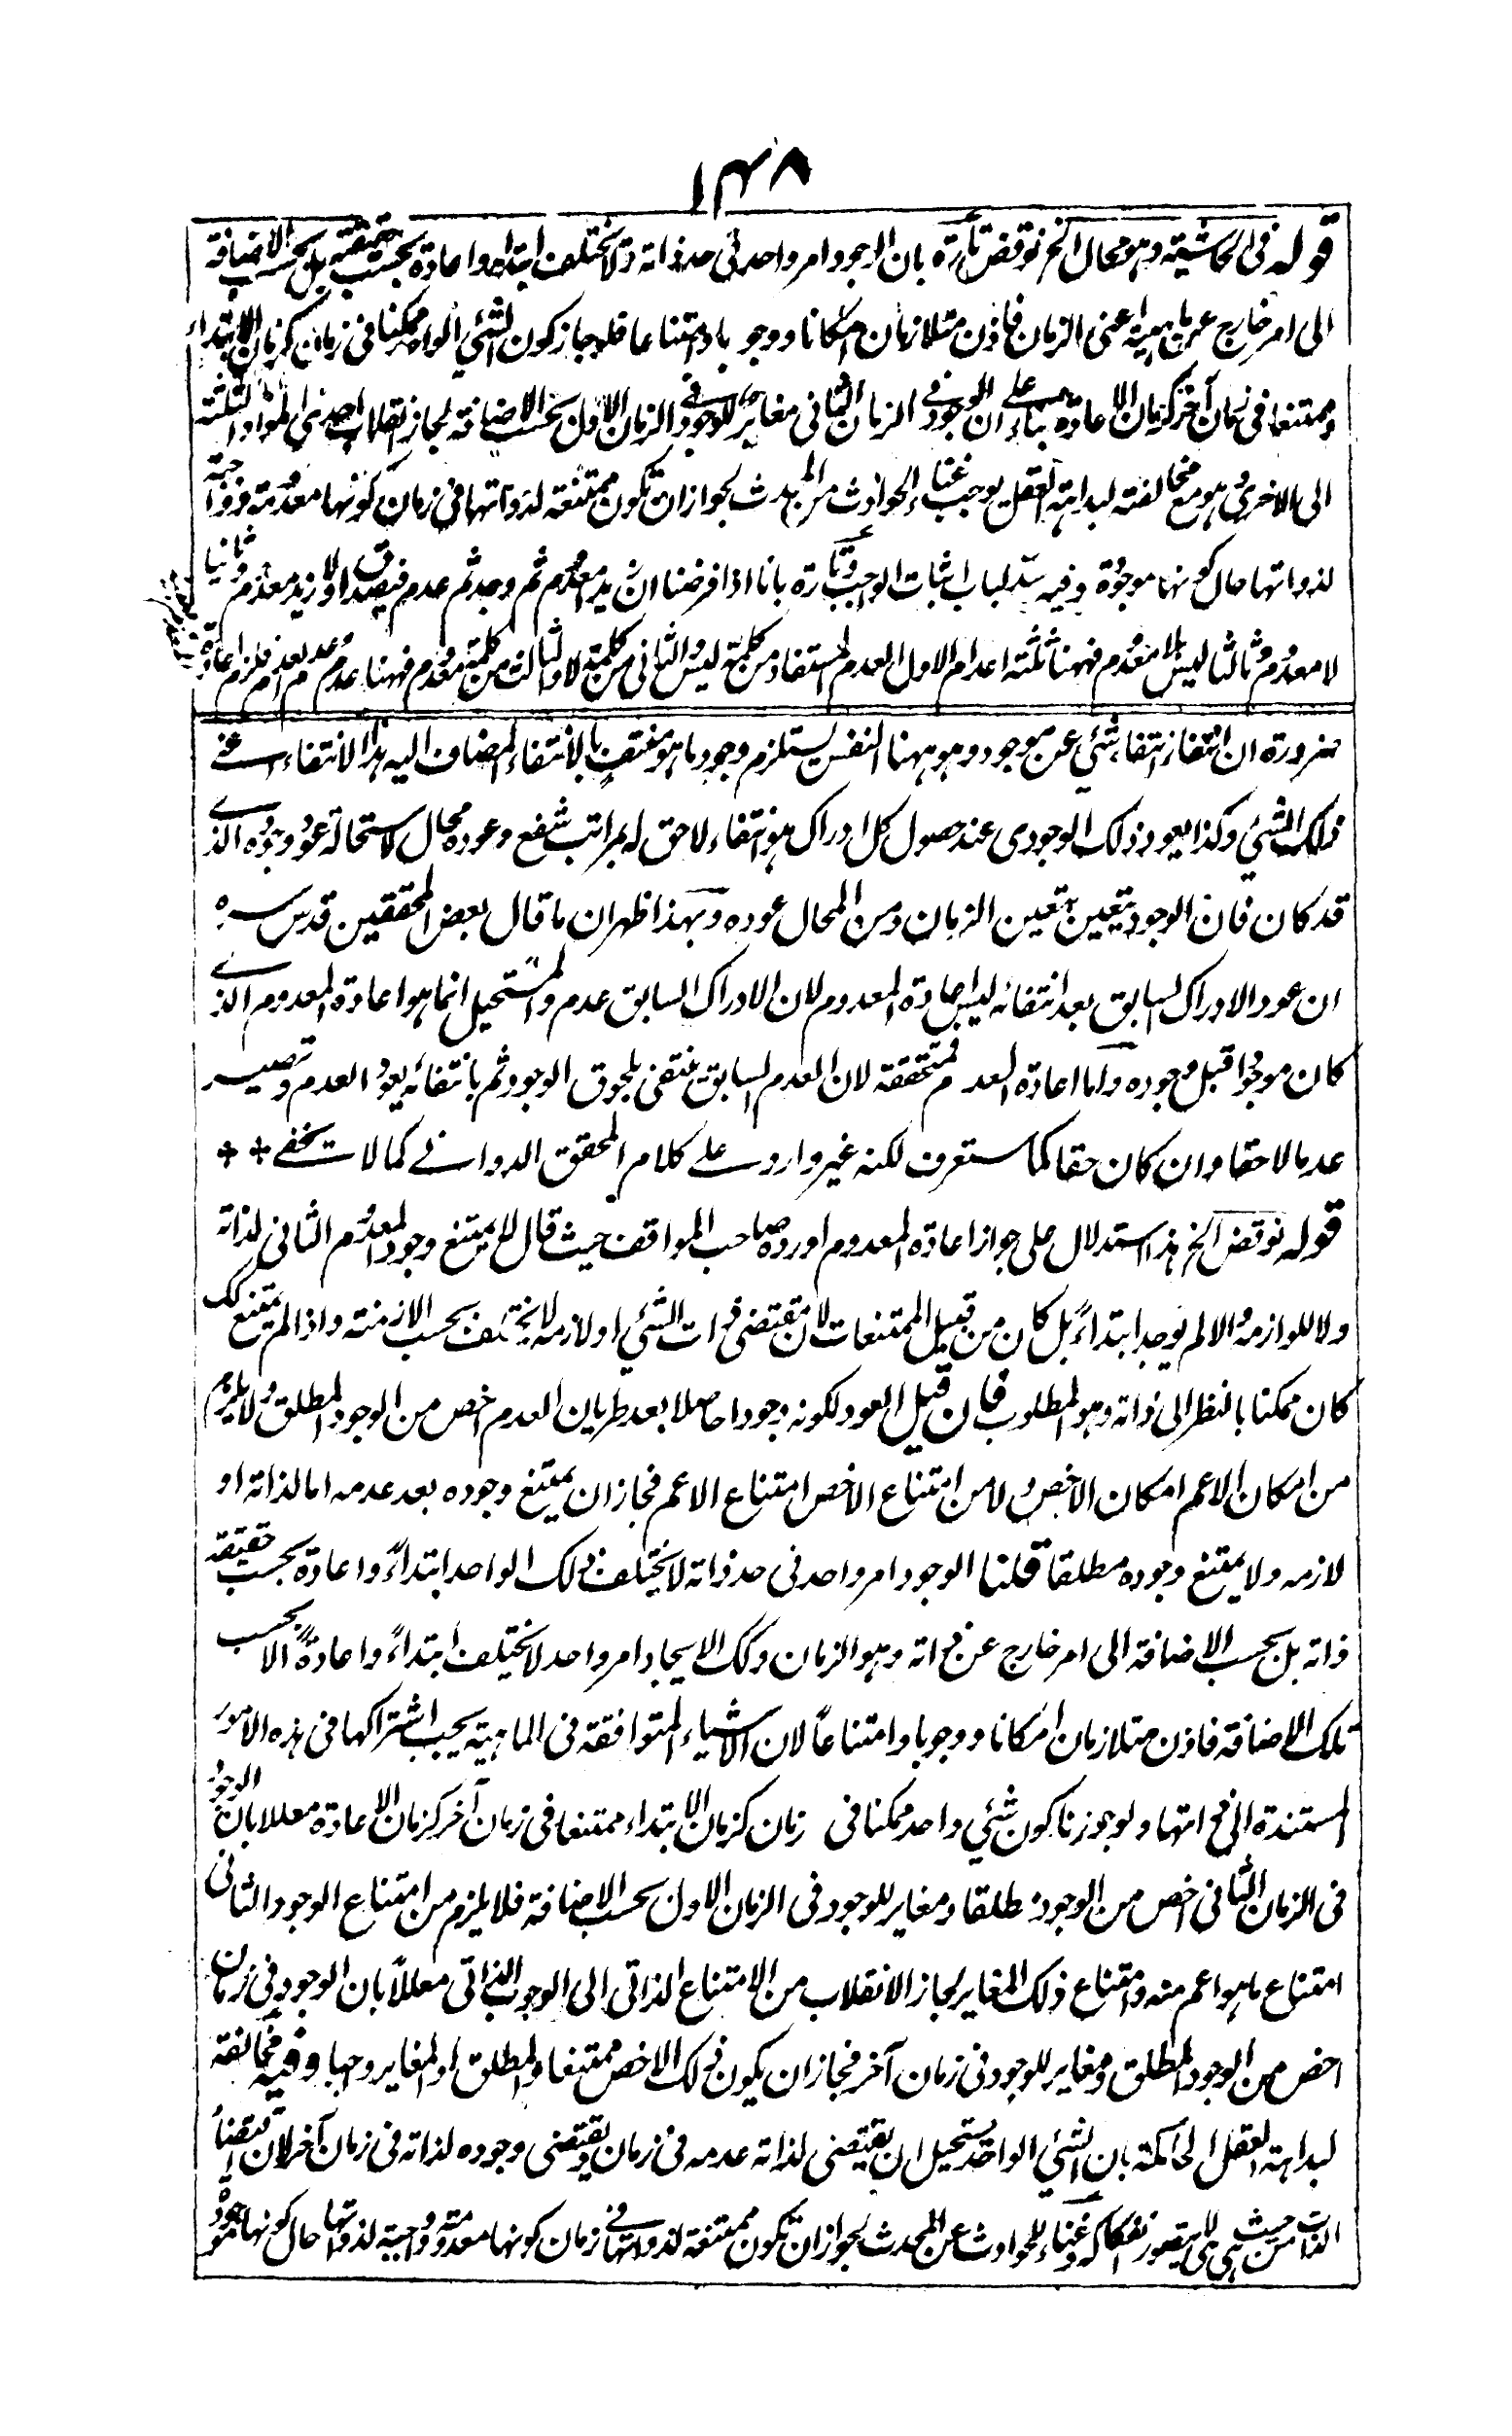 ١٣٨
قوله فى الحاشية وهو محال الخ نوقض تارة بان الوجود امر واحد فى حد ذاته ولا يختلف ابتداء واعادة بحسب حقيقته بل بحسب الاضافة
الى امر خارج عن ماهيته اعنى الزمان فاذن متلازمان امكانا ووجوبا وامتناعا فلو جاز كون الشئ الواحد ممكنا فى زمان كزمان الابتداء
وممتنعا فى زمان آخر كزمان الاعادة بناء على ان الوجود فى الزمان الثانى مغاير للوجود فى الزمان الاول بحسب الاضافة لجاز انقلاب احدى المواد الثلثة
الى الاخرى وهو مع مخالفته لبداهة العقل يوجب غناء الحوادث من المحدث لجواز ان تكون ممتنعة لذواتها فى زمان كونها معدومة وواجبة
لذواتها حال كونها موجودة وفيه سد لباب اثبات الواجب وتارة بانا اذا فرضنا ان زيد معدوم ثم وجد ثم عدم فيصدق اولا زيد معدوم وثانيا
لا معدوم وثالثا ليس بلا معدوم فههنا ثلثة اعدام الاول العدم المستفاد من كلمة ليس والثانى من كلمة لا والثالث من كلمة معدوم فههنا عدم عدم العدم فلزم اعادة
ضرورة ان انتفاء انتفاء شئ عن موجود وهو ههنا النفس يستلزم وجود ما هو منتف بالانتفاء المضاف اليه هذا الانتفاء اعنى
ذلك الشئ وكذا يعود ذلك الوجودى عند حصول كل ادراك هو انتفاء لاحق له بمراتب شفع وعوده محال لاستحالة عود وجوده الذى
قد كان فان الوجود يتعين بتعين الزمان ومن المحال عوده وبهذا ظهر ان ما قال بعض المحققين قدس سره
ان عود الادراك السابق بعد انتفائه ليس باعادة المعدوم لان الادراك السابق عدم والمستحيل انما هو اعادة المعدوم الذى
كان موجودا قبل وجوده واما اعادة العدم فمتحققة لان العدم السابق ينتفى بلحوق الوجود ثم بانتفائه يعود العدم وتصير
عدما لاحقا وان كان حقا كما ستعرف لكنه غير وارد على كلام المحقق الدوانى كما لا يخفى ٭٭
قوله نوقض الخ هذا استدلال على جواز اعادة المعدوم اورده صاحب المواقف حيث قال لا يمتنع وجود المعدوم الثانى لذاته
ولا للوازمه والا لم يوجد ابتداءً بل كان من قبيل الممتنعات لان مقتضى ذات الشئ او لازمه لا يختلف بحسب الازمنة واذا لم يمتنع كك
كان ممكنا بالنظر الى ذاته وهو المطلوب فان قيل العود لكونه وجودا حاصلا بعد طريان العدم اخص من الوجود المطلق ولا يلزم
من امكان الاعم امكان الاخص ولا من امتناع الاخص امتناع الاعم فجاز ان يمتنع وجوده بعد عدمه اما لذاته او
لازمه ولا يمتنع وجوده مطلقا قلنا الوجود امر واحد فى حد ذاته لا يختلف ذلك الواحد ابتداءً واعادة بحسب حقيقة
ذاته بل بحسب الاضافة الى امر خارج عن ذاته وهو الزمان وكك الايجاد امر واحد لا يختلف ابتداءً واعادةً الا بحسب
تلك الاضافة فاذن متلازمان امكانا ووجوبا وامتناعاً لان الاشياء المتوافقة فى الماهية يجب اشتراكها فى هذه الامور
المستندة الى ذواتها ولو جوزنا كون شئ واحد ممكنا فى زمان كزمان الابتداء ممتنعا فى زمان آخر كزمان الاعادة معللا بان الوجود
فى الزمان الثانى اخص من الوجود مطلقا ومغاير للوجود فى الزمان الاول بحسب الاضافة فلا يلزم من امتناع الوجود الثانى
امتناع ما هو اعم منه وامتناع ذلك المغاير لجاز الانقلاب من الامتناع الذاتى الى الوجوب الذاتى معللاً بان الوجود فى زمان
اخص من الوجود المطلق ومغاير للوجود فى زمان آخر فجاز ان يكون ذلك الاخص ممتنعا والمطلق او المغاير واجبا وفيه مخالفة
لبداهة العقل الحاكمة بان الشئ الواحد يستحيل ان يقتضى لذاته عدمه فى زمان ويقتضى وجوده لذاته فى زمان آخر لان اقتضاء
الذات من حيث هى هى لا يتصور انفكاكه وغناء للحوادث عن المحدث لجواز ان تكون ممتنعة لذواتها فى زمان كونها معدومة وواجبة لذواتها حال كونها موجودة